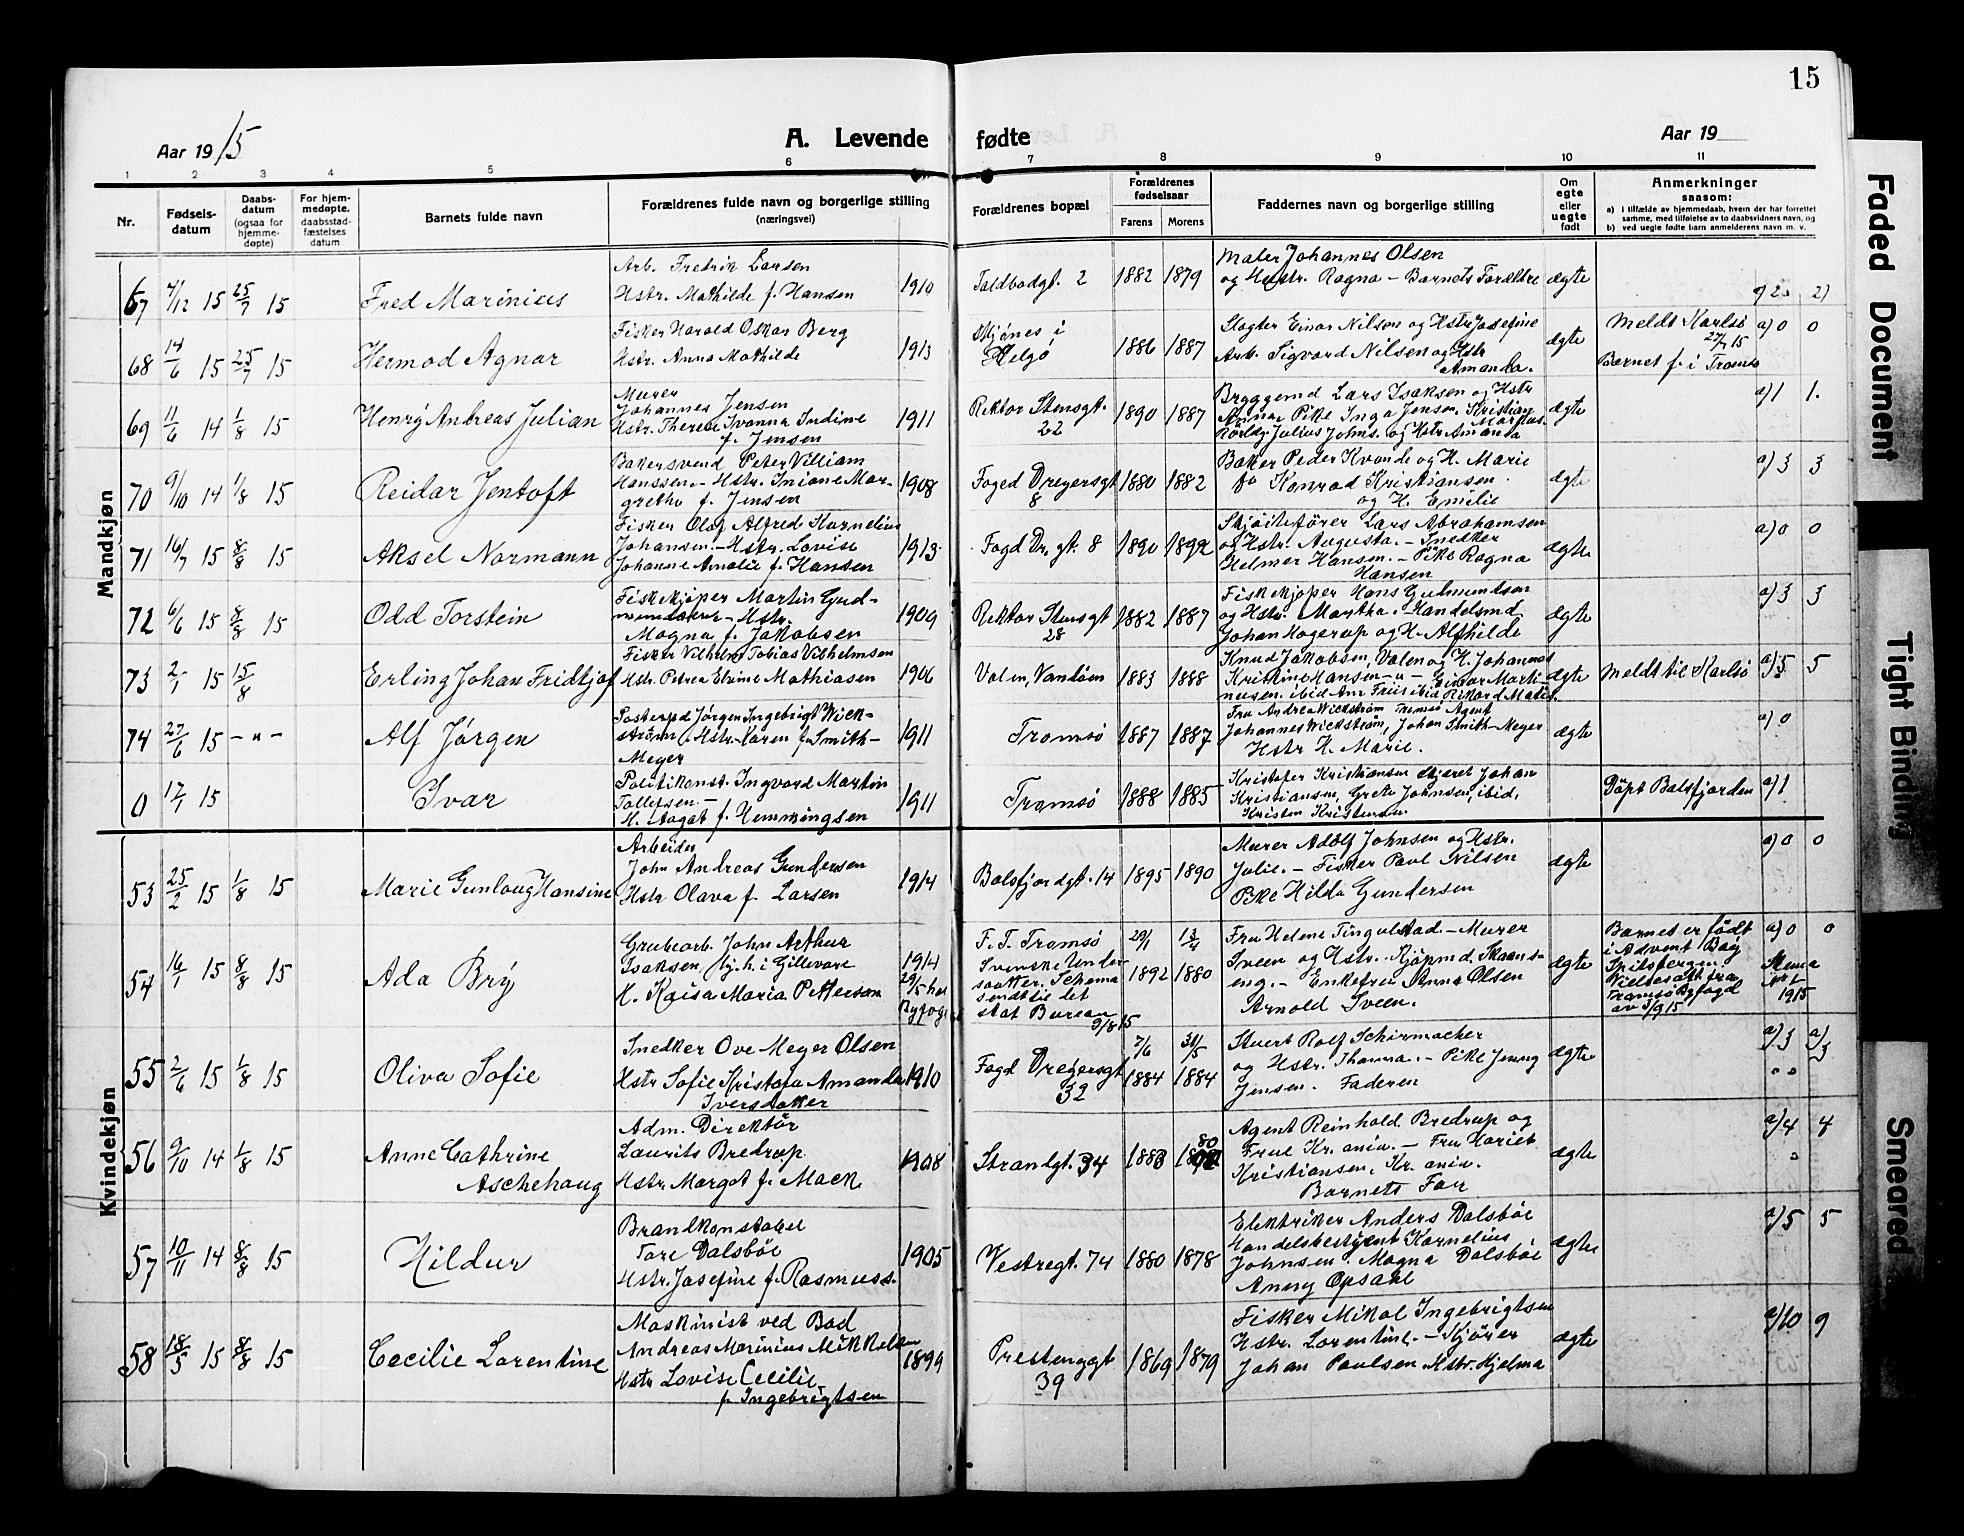 15
Aar 1915
A. Levende fødte
Aar 19
1 2 3 4 5 6 7 8 9 10 11
Nr.
Fødsels-
datum
Daabs-
datum
(ogsaa for
hjemme-
døpte)
For hjem-
medøpte,
daabsstad-
fæstelses
datum
Barnets fulde navn
Forældrenes fulde navn og borgerlige stilling
(næringsvei)
Forældrenes bopæl
Forældrenes
fødselsaar
Farens Morens
Faddernes navn og borgerlige stilling
Om
egte
eller
uegte
født
Anmerkninger
saasom:
a) i tilfælde av hjemmedaab, hvem der har forrettet
samme, med tilføielse av to daabsvidners navn, og
b) ved uegte fødte barn anmelderens navn m. v.
Mandkjøn
67 4/12 15 25/7 15 Fred Marinius
Arb. Fredrik Larsen
Hstr. Mathilde f. Hansen
1910 Toldbodgt. 2 1882 1879
Maler Johannes Olsen
og Hstr. Ragna – Barnets Forældre
ægte
68 14/6 15 25/7 15 Hermod Agnar
Fisker Harald Oskar Berg
Hstr. Anna Mathilde
1913
Skjånes i
Helgø
1886 1887
Slagter Einar Nilsen og Hstr Josefine
Arb. Sigvard Nilsen og Hstr
Amanda.
ægte
Meldt Karlsø
27/7 15
Barnet f. i Tromsø
a) 0 0
69 11/6 14 1/8 15 Henry Andreas Julian
Murer
Johannes Jensen
Hstr. Therese Ivanna Indine
f. Jensen
1911
Rektor Stensgt.
22
1890 1887
Bryggemd Lars Isaksen og Hstr
Pike Inga Jensen. Kristian
Julius Johns. og Hstr Amanda
ægte a) 1 1.
70 9/10 14 1/8 15 Reidar Jentoft
Bakersvend Peter Villiam
Hanssen – Hstr. Iniane Mar-
grethe f. Jensen
1908
Foged Dreyersgt
8
1880 1882
Baker Peder Kvande og H. Marie
Konrad Kristiansen
og H. Emilie
ægte a) 3 3
71 16/7 15 8/8 15 Aksel Normann
Fisker Olaf Alfred Kornelius
Johansen. – Hstr. Lovise
Johanne Amalie f. Hansen
1913 Fogd Dr. gt. 8 1890 1892
Skjøitefører Lars Abrahamsen
og Hstr. Augusta. – Snedker
Helmer Hansen. – Pike Ragna
Hansen
ægte a) 0 0
72 6/6 15 8/8 15 Odd Torstein
Fiskekjøper Martin Gud-
mundsen – Hstr.
Magna f. Jakobsen
1909
Rektor Stensgt
28
1882 1887
Fiskekjøper Hans Gudmundsen
og Hstr. Martha. – Handelsmd
Johan Hagerup og H. Alfhilde
ægte a) 3 3
73 2/1 15 15/8 Erling Johan Fridtjof
Fisker Vilhelm Tobias Vilhelmsen
Hstr. Petrea Elvine Mathiasen
1906 Valen, Vandøen 1883 1888
Knud Jakobsen, Valen og H. Johannes
Kristine Hansen – " – Einar Marti-
nusen. ibid
ægte Meldt til Karlsø a) 5 5
74 27/6 15 – " – Alf Jørgen
Posteexpd Jørgen Ingebrigt Wick-
strøm. Hstr. Karen f. Smith-
Meyer
1911 Tromsø 1887 1887
Fru Andrea Wickstrøm Tromsø Agent
Johannes Wickstrøm, Johan Smith-Meyer
Hstr H. Marie.
ægte a) 0
0 17/1 15 Ivar
Politikonst. Ingvard Martin
Tollefsen –
H. Aagot f. Hemmingsen
1911 Tromsø 1888 1885
Kristofer Kristiansen Johan
Kristiansen, Grete Johnsen, ibid,
Døpt Balsfjorden a) 1
Kvindekjøn
53 25/2 15 1/8 15 Marie Gunlaug Hansine
Arbeider
John Andreas Gundersen
Hstr Olava f. Larsen
1914 Balsfjordgt. 14 1895 1890
Murer Adolf Johnsen og Hstr.
Julie. – Fisker Paul Nilsen
Pike Hilda Gundersen
ægte a) 0 0
54 16/1 15 8/8 15 Ada Bry
Grubearb. John Arthur
Isaksen hj. h. i Gillevare
H. Kaisa Maria Petterson
1914
F. T. Tromsø
Svenske Under
saatter. Schema
sendt til det
stat Bureau
9/8 15
29/1 1892 13/4 1880
Fru Helene Tingulstad. – Murer
Sveen og Hstr. Kjøpmd. Skaans-
eng. – Enkefru Anna Olsen
Arnold Sveen.
ægte
Barnet er født
i Advent Bay
Spitsbergen
Vielsesatt. fra
Tromsø Byfogd
av 3/9 15
a) 0 0
1915
55 2/6 15 1/8 15 Oliva Sofie
Snedker Ove Meyer Olsen
Hstr Sofie Kristofa Amanda
Iversdatter
1910
Fogd Dreyersgt
32
7/6 1884 31/5 1884
Stuert Rolf Schirmacher
og Hstr. Thanna. – Pike Jenny
Jensen. Faderen
ægte a) 3 a) 3
56 9/10 14 1/8 15 Anne Cathrine
Aschehoug
Adm. Direktør
Laurits Bredrup
Hstr Margot f. Mack
1908 Strandgt. 34 1883 80
Agent Reinhold Bredrup og
Frue Kr. ania. – Fru Hariet
Kristiansen, Kr. ania.
Barnets Far
ægte a) 4 4
57 10/11 14 8/8 15 Hildur
Brandkonstabel
Tore Dalsbøe
Hstr. Josefine f. Rasmuss.
1905 Vestregt. 74 1880 1878
Elektriker Anders Dalsbøe
Handelsbestyrer Kornelius
Johnsen. Magna Dalsbøe
Anny Opsahl
ægte a) 5 5
58 18/5 15 8/8 15 Cecilie Lorentine
Maskinist ved Bad
Andreas Marinius Mikkelsen
Hstr Lovise Cecilie
f. Ingebrigtsen
1899
Prestenggt
39
1869 1879
Fisker Mikal Ingebrigtsen
Hstr. Lorentine. – Kjører
Johan Paulsen Hstr. Hjelma
ægte a) 10 9
Faded Document
Tight Binding
Smeared